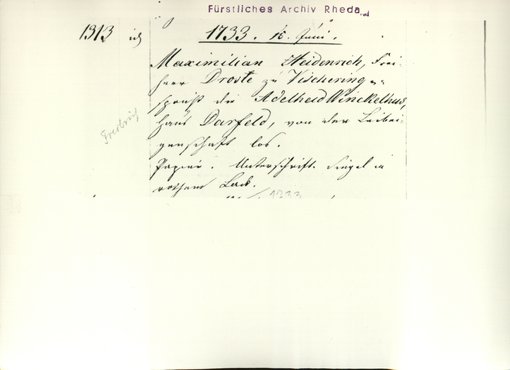 Fürstliches Archiv Rheda
1313 1733. 16. Juni.
Maximilian Heidenrich, Frei-
herr Droste zu Vischering
spricht die Adelheid Winckelhus,
Haus Darfeld, von der Leibei-
genschaft los.
Papier. Unterschrift. Siegel in
rothem Lack.
Freibrief